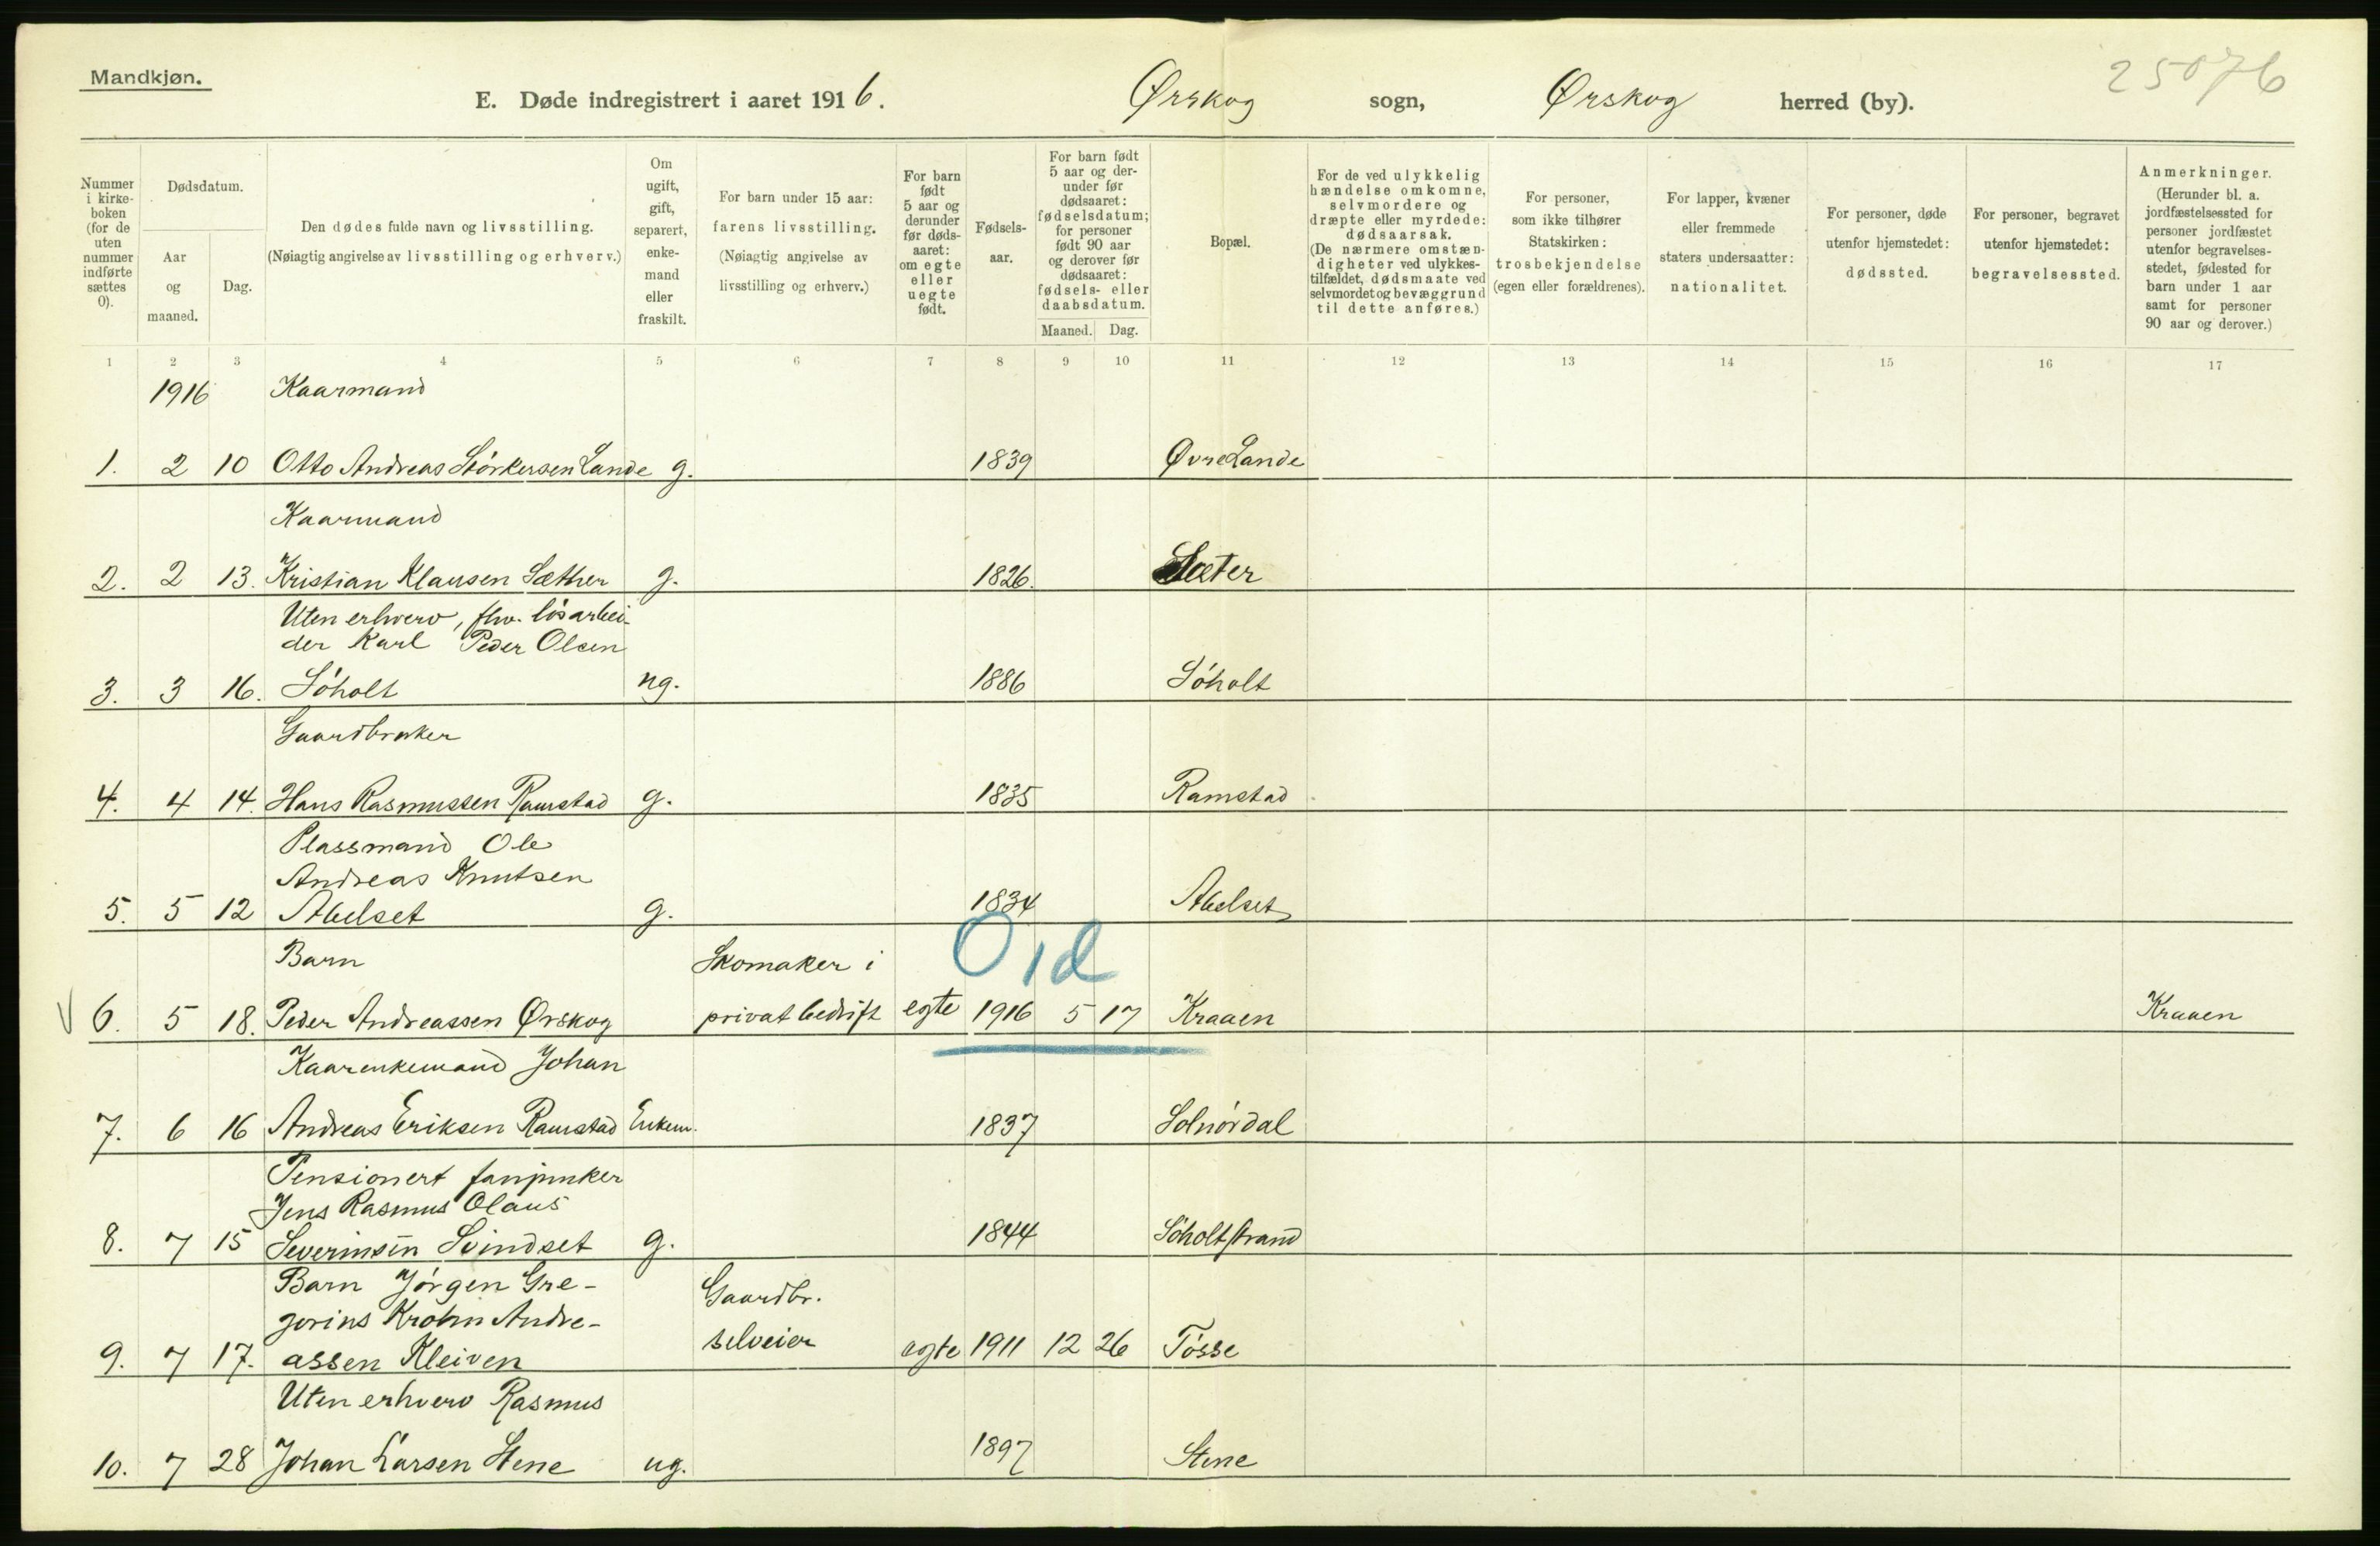 Mandkjøn.
E. Døde indregistrert i aaret 1916. Ørskog sogn, Ørskog herred (by).
25076
Nummer i kirke-boken (for de uten nummer indførte sættes 0).
Dødsdatum.
Aar og maaned.
Dag.
Den dødes fulde navn og livsstilling.
(Nøiagtig angivelse av livsstilling og erhverv.)
Om ugift, gift, separert, enke-mand eller fraskilt.
For barn under 15 aar:
farens livsstilling.
(Nøiagtig angivelse av livsstilling og erhverv.)
For barn født 5 aar og derunder før døds-aaret: om egte eller uegte født.
Fødsels-aar.
For barn født 5 aar og der-under før dødsaaret: fødselsdatum; for personer født 90 aar og derover før dødsaaret: fødsels- eller daabsdatum.
Maaned. Dag.
Bopæl.
For de ved ulykkelig hændelse omkomne, selvmordere og dræpte eller myrdede: dødsaarsak.
(De nærmere omstæn-digheter ved ulykkes-tilfældet, dødsmaate ved selvmordet og bevæggrund til dette anføres.)
For personer, som ikke tilhører Statskirken: trosbekjendelse (egen eller forældrenes).
For lapper, kvæner eller fremmede staters undersaatter: nationalitet.
For personer, døde utenfor hjemstedet: dødssted.
For personer, begravet utenfor hjemstedet: begravelsessted.
Anmerkninger.
(Herunder bl. a. jordfæstelsessted for personer jordfæstet utenfor begravelses-stedet, fødested for barn under 1 aar samt for personer 90 aar og derover.)
1 2 3 4 5 6 7 8 9 10 11 12 13 14 15 16 17
1916 Kaarmand
1. 2 10 Otto Andreas Störkersen Lande g. 1839 Øvre Lande
Kaarmand
2. 2 13. Kristian Klausen Sæther g. 1826. Sæter
Uten erhverv, fhv. lösarbei-
der Karl Peder Olsen
3. 3 16. Söholt ug. 1886 Söholt
Gaardbruker
4. 4 14. Hans Rasmussen Ramstad g. 1835 Ramstad
Plassmand Ole
Andreas Knutsen
5. 5 12 Abelset g. 1834 Abelset
Barn Skomaker i
6. 5 18. Peder Andreassen Ørskog privat bedrift egte 1916 5 17 Kraaen Kraaen
0 1d
Kaarenkemand Johan
7. 6 16 Andreas Eriksen Ramstad Enkem. 1837 Solnördal
Pensionert fanejunker
Jens Rasmus Olaus
8. 7 15 Severinsen Svindset g. 1844 Söholtstrand
Barn Jörgen Gre-
gorius Krohn Andre- Gaardbr.
9. 7 17. assen Kleiven selveier egte 1911 12 26 Tösse
Uten erhverv Rasmus
10. 7 28 Johan Larsen Stene ug. 1897 Stene